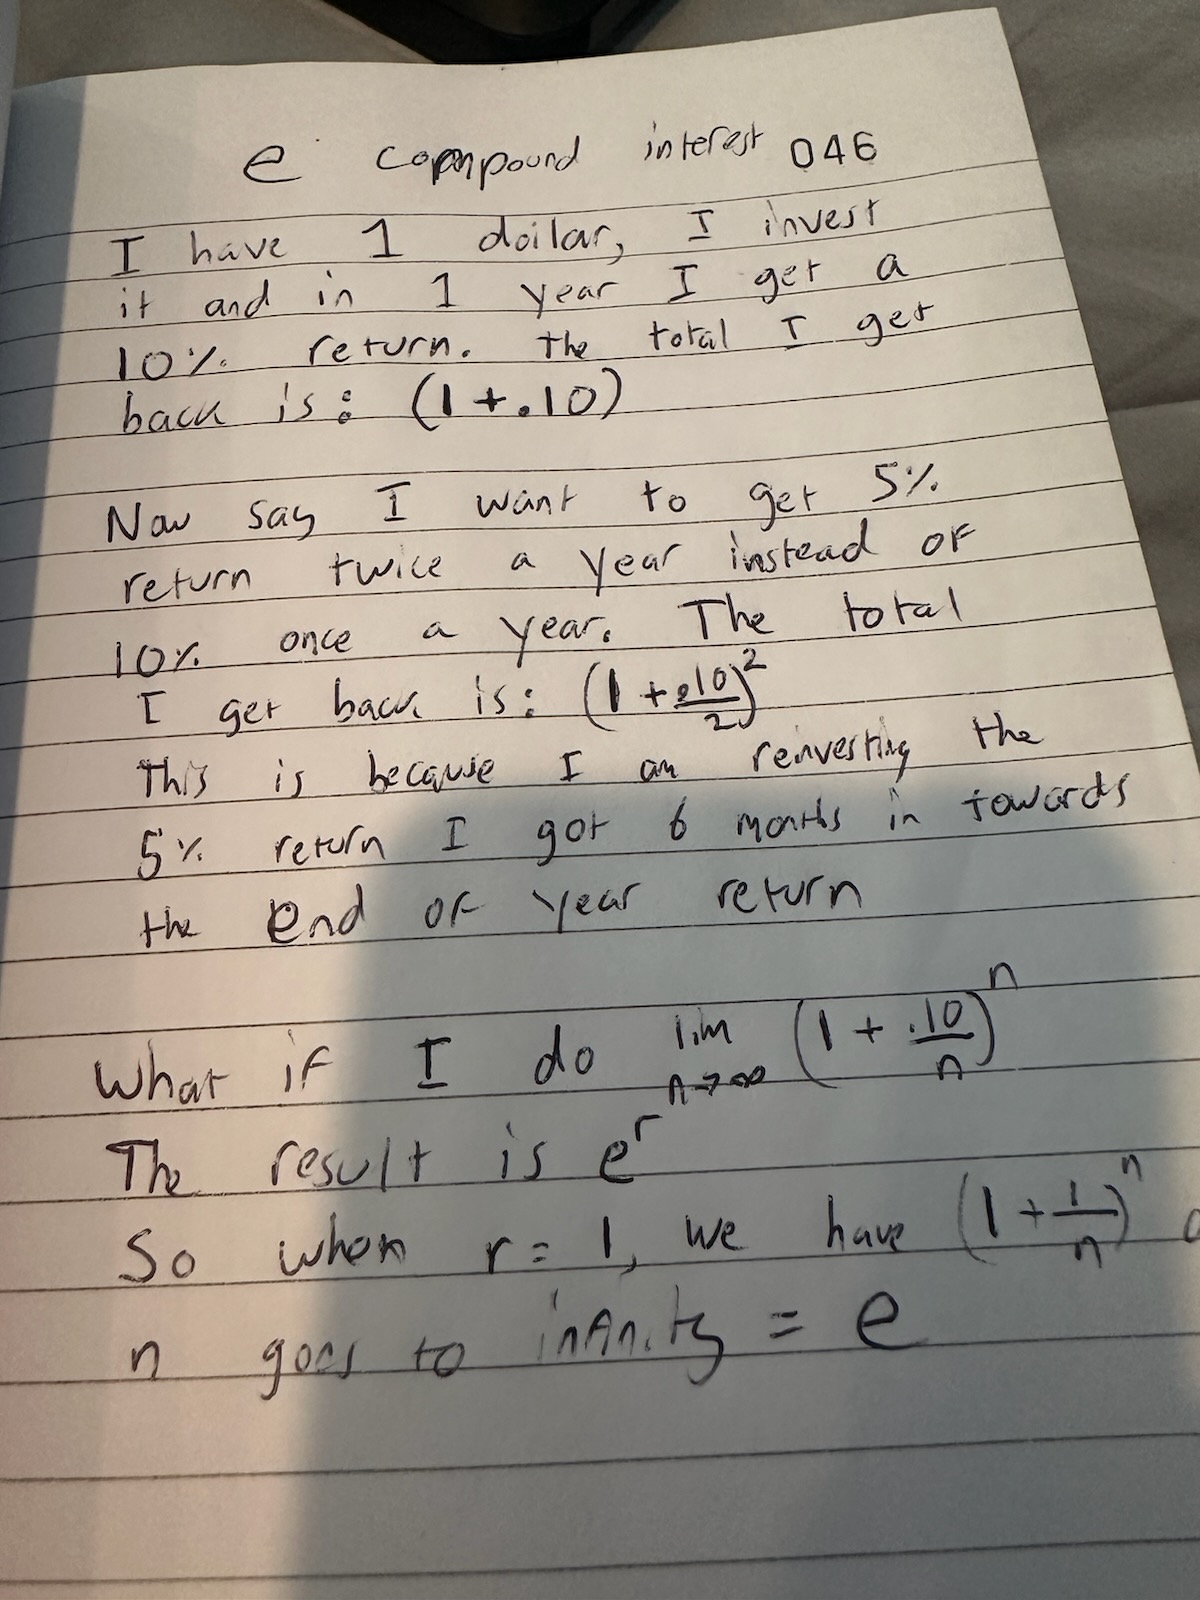 e compound interest 046
I have 1 dollar, I invest
it and in 1 year I get a
10% return. The total I get
back is: (1+.10)
Now say I want to get 5%
return twice a year instead of
10% once a year. The total
I get back is: (1 + .10/2)²
This is because I am reinvesting the
5% return I got 6 months in towards
the end of year return
What if I do lim n→∞ (1 + .10/n)ⁿ
The result is eʳ
So when r = 1, we have (1 + 1/n)ⁿ
n goes to infinity = e